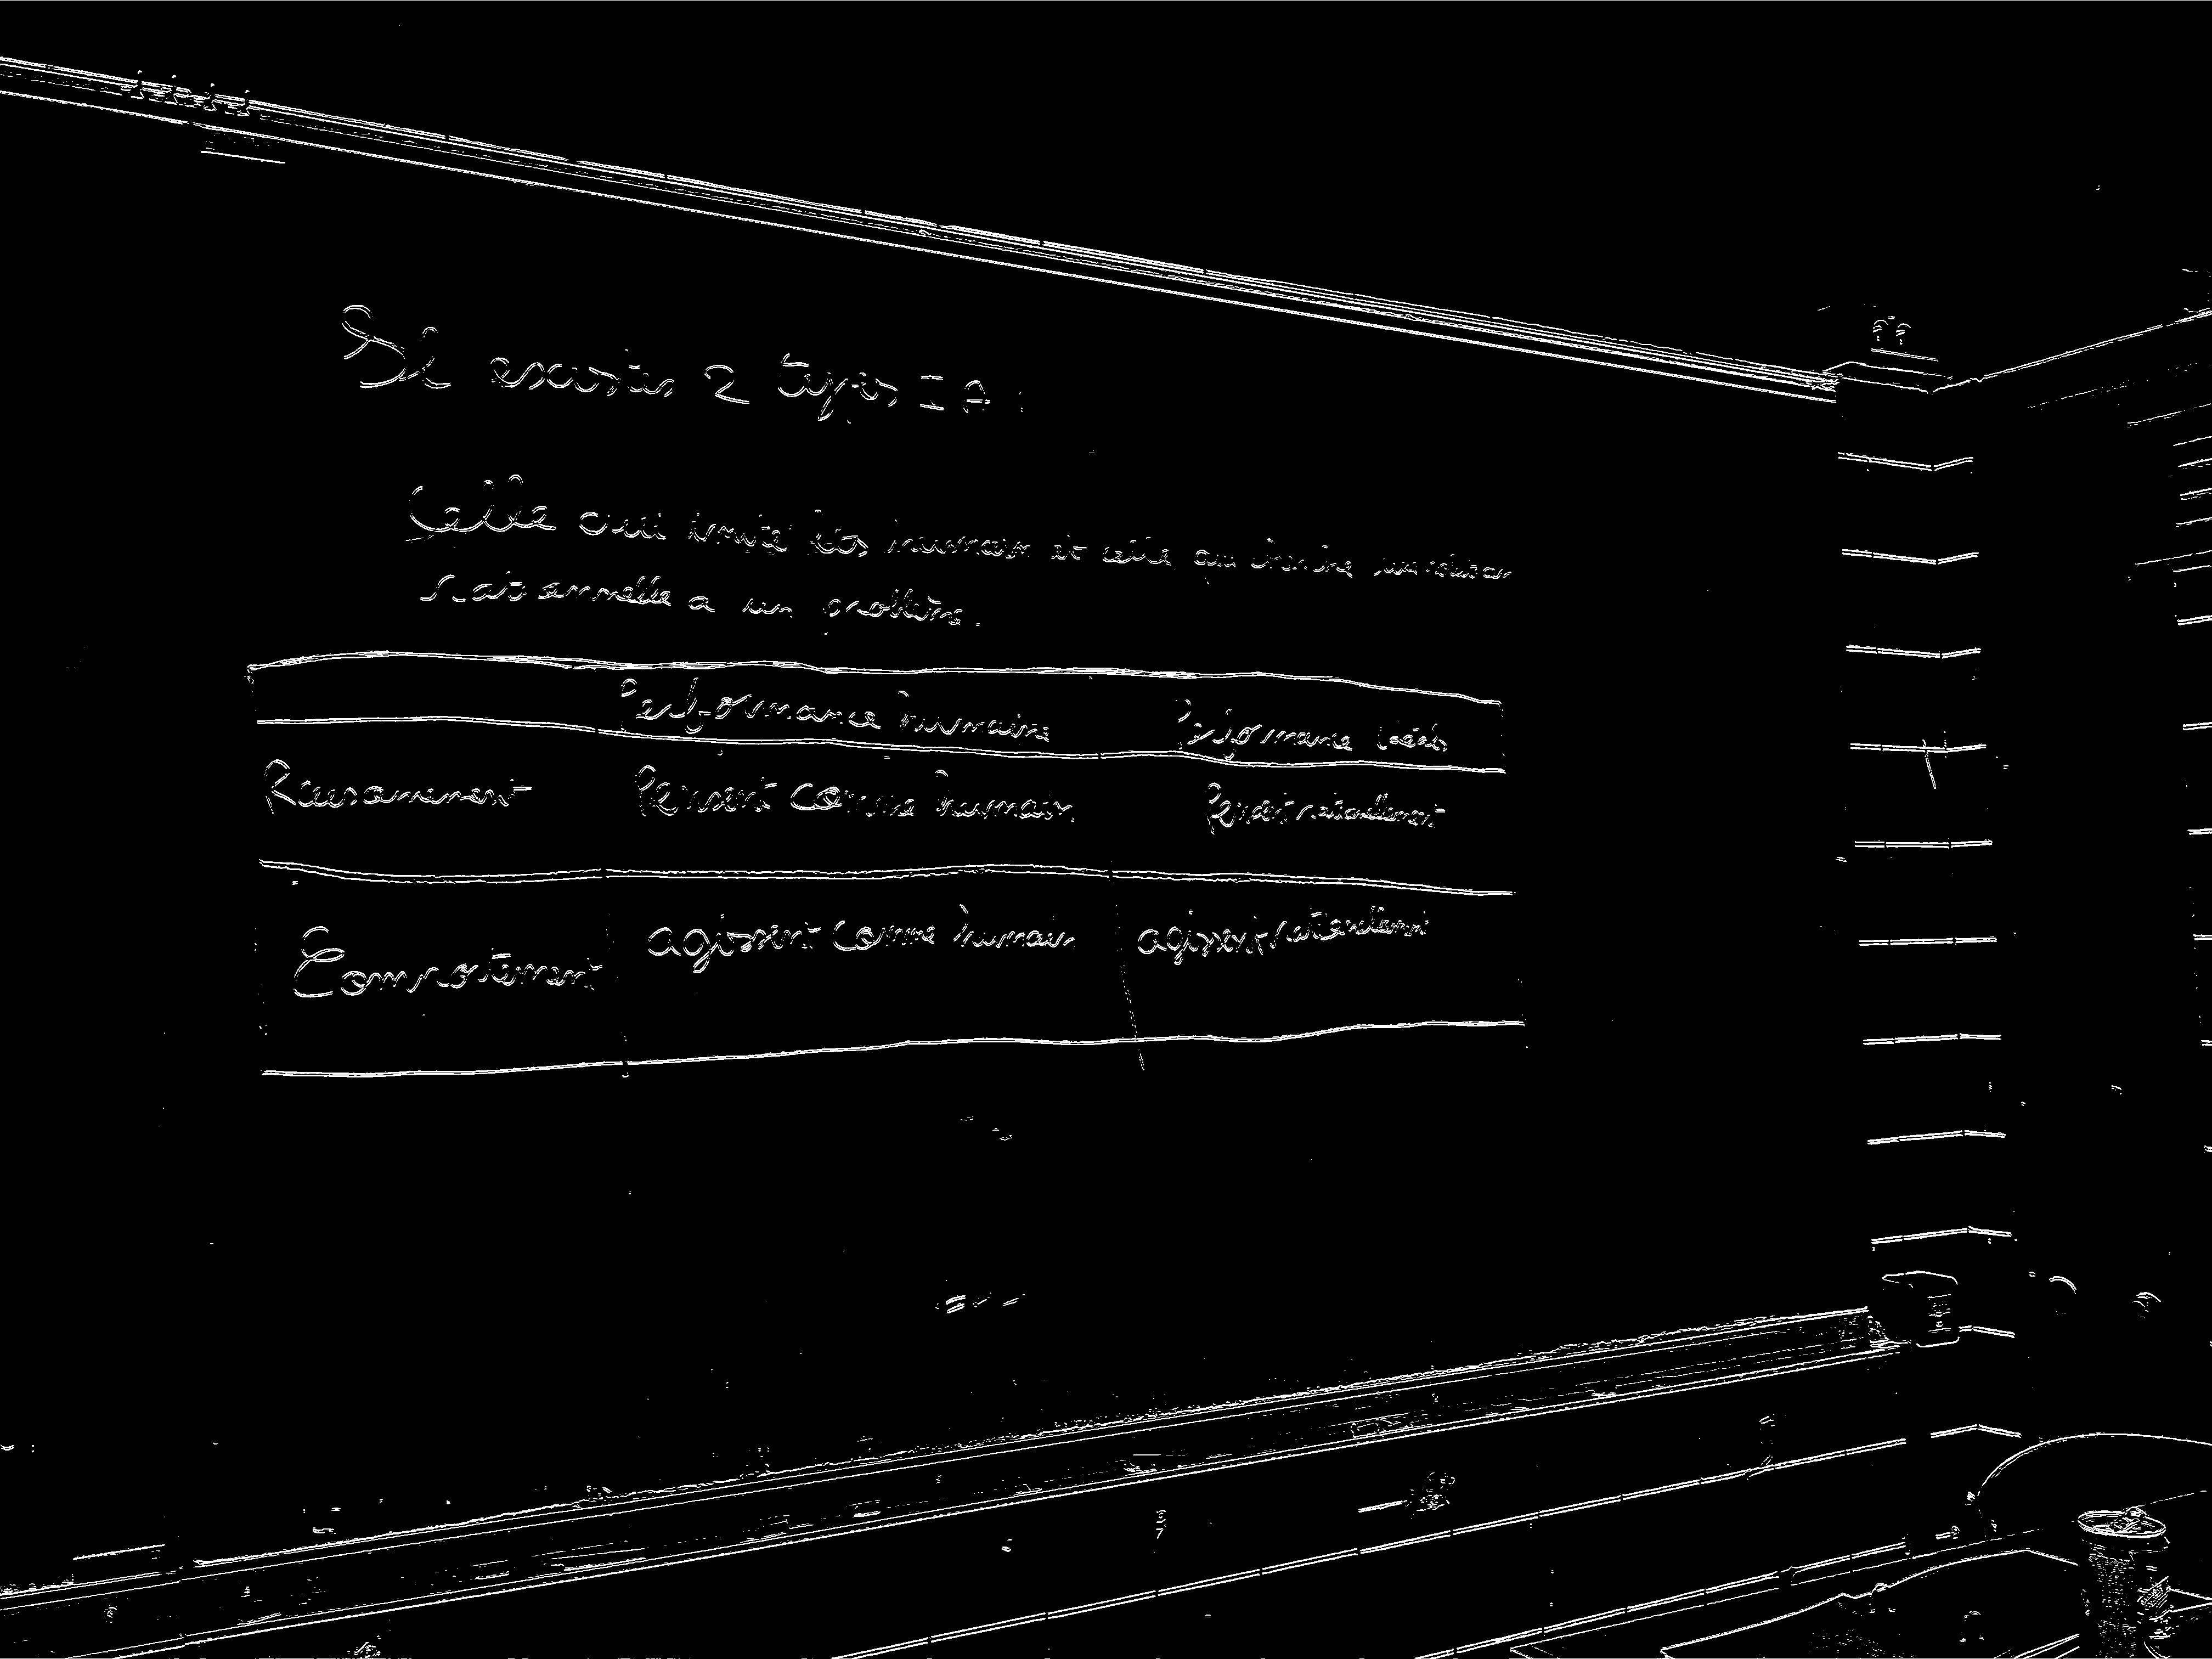 Il existes 2 types IA :
Celle qui imite les humain et celle qui cherche une solution
rationnelle a un problème.
Performance humaine Performance Idéale
Raisonnement Pensent comme humain Pensent rationellement
Comportement agissent comme humain agissent rationellement